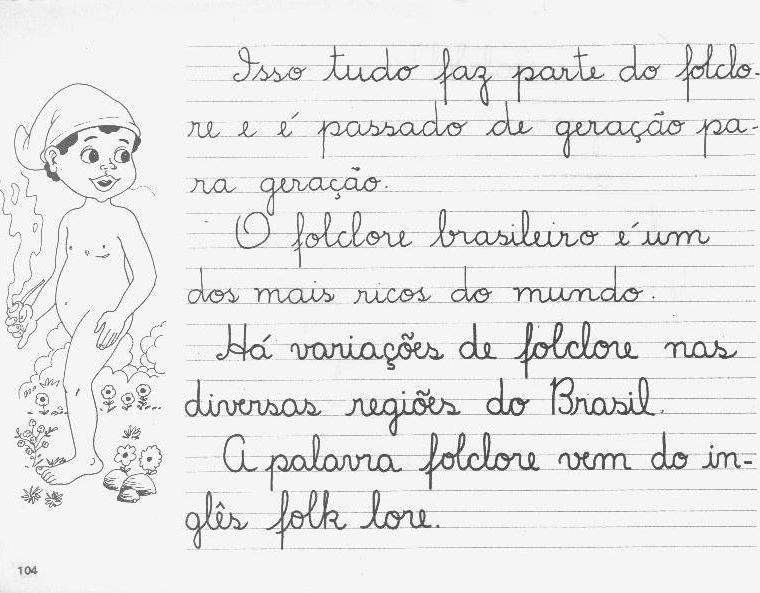 Isso tudo faz parte do folclo-
re e é passado de geração pa-
ra geração.
O folclore brasileiro é um
dos mais ricos do mundo.
Há variações de folclore nas
diversas regiões do Brasil.
A palavra folclore vem do in-
glês folk lore.
104